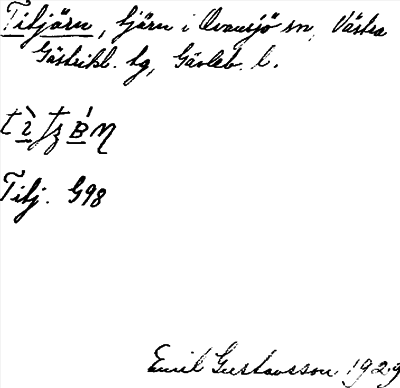 Titjärn, tjärn i Ovansjö sn, Västra
Gästrikl. tg, Gävleb. l.
Titj. G98
Emil Gustavsson 1929